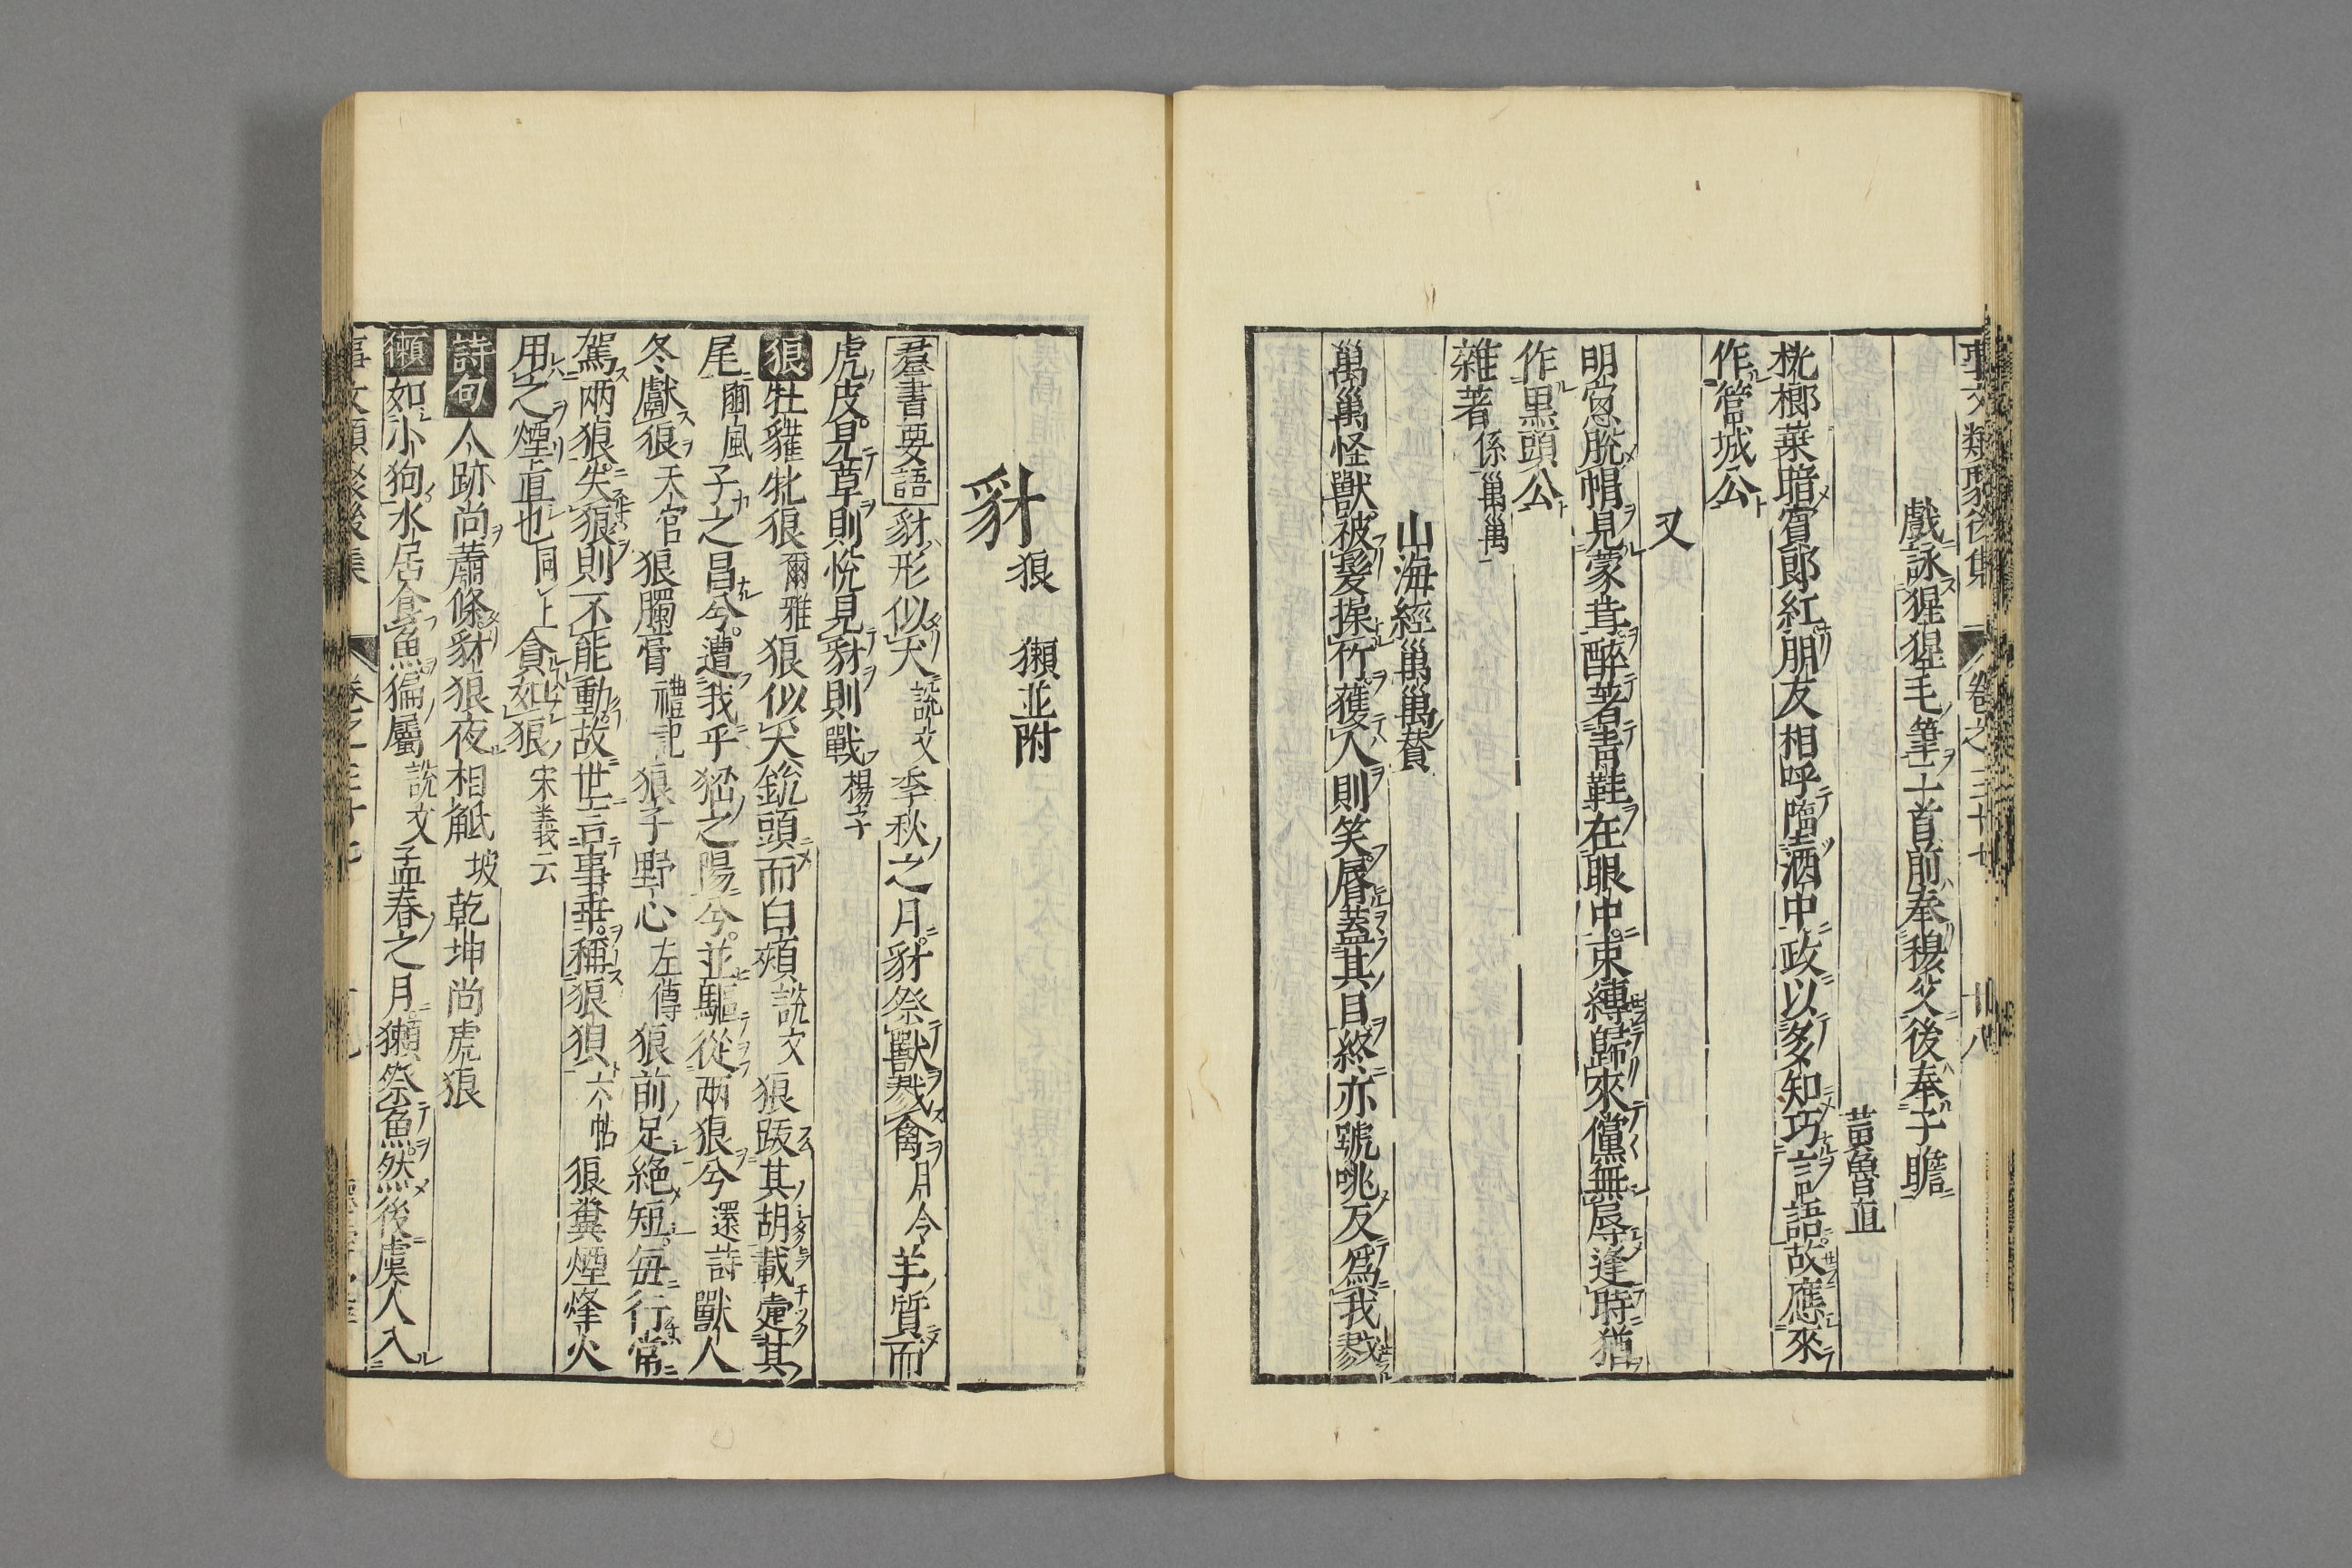 事文類聚後集 卷之三十七 十八
戲詠猩猩毛筆二首前奉穆父後奉子瞻
黃魯直
桄榔葉暗賓郎紅朋友相呼墮酒中政以多知巧言語故應來
作管城公
又
明窻脫帽見蒙茸醉著青鞋在眼中束縛歸來儻無辱逢時猶
作黑頭公
雜著 係𮕧𮕧
山海經𮕧𮕧贊
𮕧𮕧怪獸被髮操竹獲人則笑脣蓋其目終亦號咷反爲我戮
豺 狼 獺並附
羣書要語 豺形似犬 說文 季秋之月豺祭獸戮禽 月令 羊質而
虎皮見草則悅見豺則戰 楊子
狼 牡貛牝狼 爾雅 狼似犬銳頭而白頰 說文 狼跋其胡載疐其
尾 豳風 子之昌兮遭我乎猺之陽兮並驅從兩狼兮 還詩 獸人
冬獻狼 天官 狼臅膏 禮記 狼子野心 左傳 狼前足絕短每行常
駕兩狼失狼則不能動故世言事乖稱狼狽 六帖 狼糞煙烽火
用之煙直也 同上 貪如狼 宋義云
詩句 人跡尚蕭條豺狼夜相觝 坡 乾坤尚虎狼
獺 如小狗水居食魚猵屬 說文 孟春之月獺祭魚然後虞人入
事文類聚後集 卷之三十七 十九